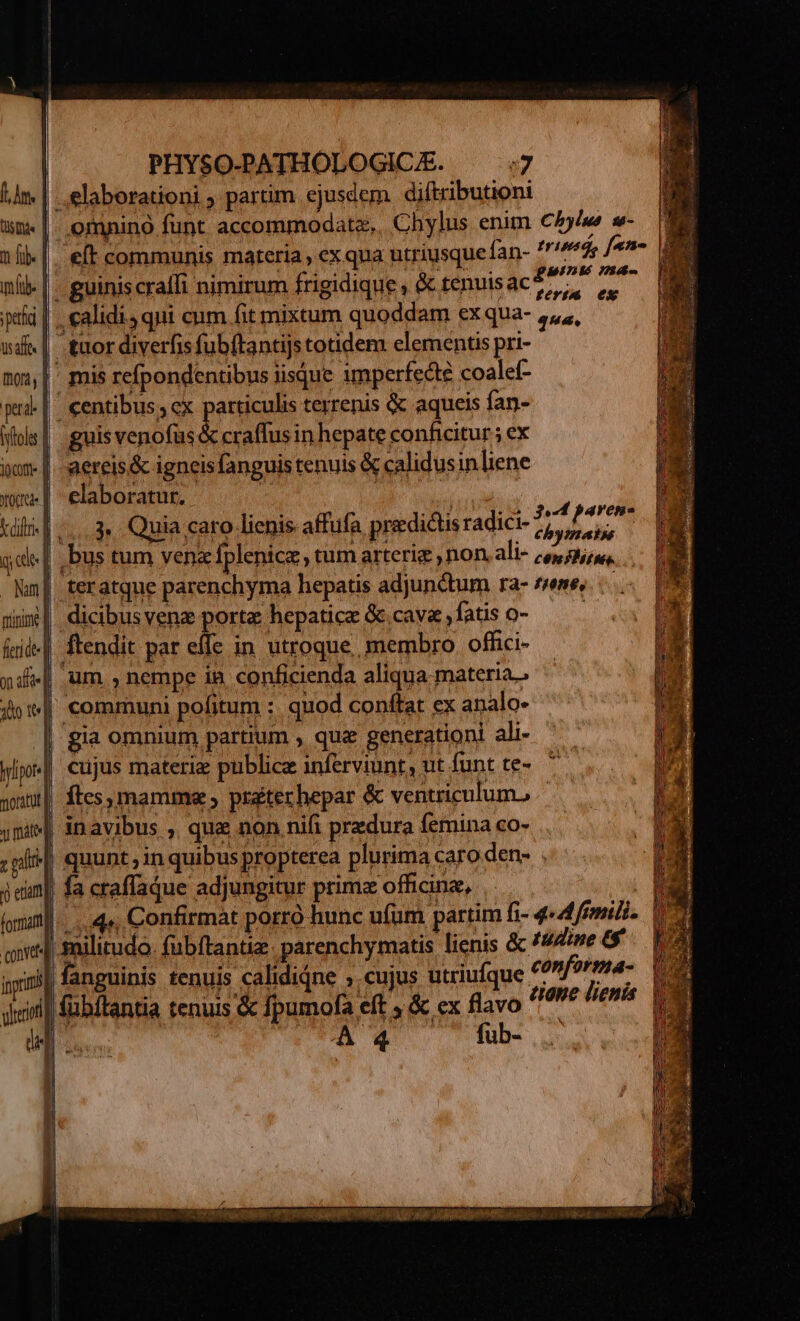 PHYSO-PATHOLOGICÆ. 7
elaborationi, partim ejusdem diſtributioni
omninò ſunt accommodatæ. Chylus enim
eſt communis materia, ex qua utriusque ſan-
guinis craſſi nimirum frigidique, & tenuis ac
calidi, qui cum ſit mixtum quoddam ex qua-
tuor diverſis ſubſtantijs totidem elementis pri-
mis reſpondentibus iisque imperfectè coaleſ-
centibus, ex particulis terrenis & aqueis ſan-
guis venoſus & craſſus in hepate conficitur; ex
aereis & igneis ſanguis tenuis & calidus in liene
elaboratur.
3. Quia caro lienis affuſa prædictis radici-
bus tum venæ ſplenicæ, tum arteriæ, non ali-
ter atque parenchyma hepatis adjunctum ra-
dicibus venæ portæ hepaticæ & cavæ, ſatis o-
ſtendit par eſſe in utroque membro offici-
um, nempe in conficienda aliqua materia
communi poſitum: quod conſtat ex analo-
gia omnium partium, quæ generationi ali-
cujus materiæ publicæ inſerviunt, ut ſunt te-
ſtes, mammæ, præter hepar & ventriculum
in avibus, quæ non niſi prædura ſemina co-
quunt, in quibus propterea plurima caro den-
ſa craſſaque adjungitur primæ officinæ,
4. Confirmat porrò hunc uſum partim ſi-
militudo ſubſtantiæ parenchymatis lienis &
ſanguinis tenuis calidiq́ne, cujus utriuſque
ſubſtantia tenuis & ſpumoſa eſt, & ex flavo
A 4 ſub-
Chylus u-
triusq, ſan-
guinis ma-
teria ex
qua,
3. A paren-
chymatis
conſtitu-
tione,
4. A ſimili-
tudine &
conforma-
tione lienis